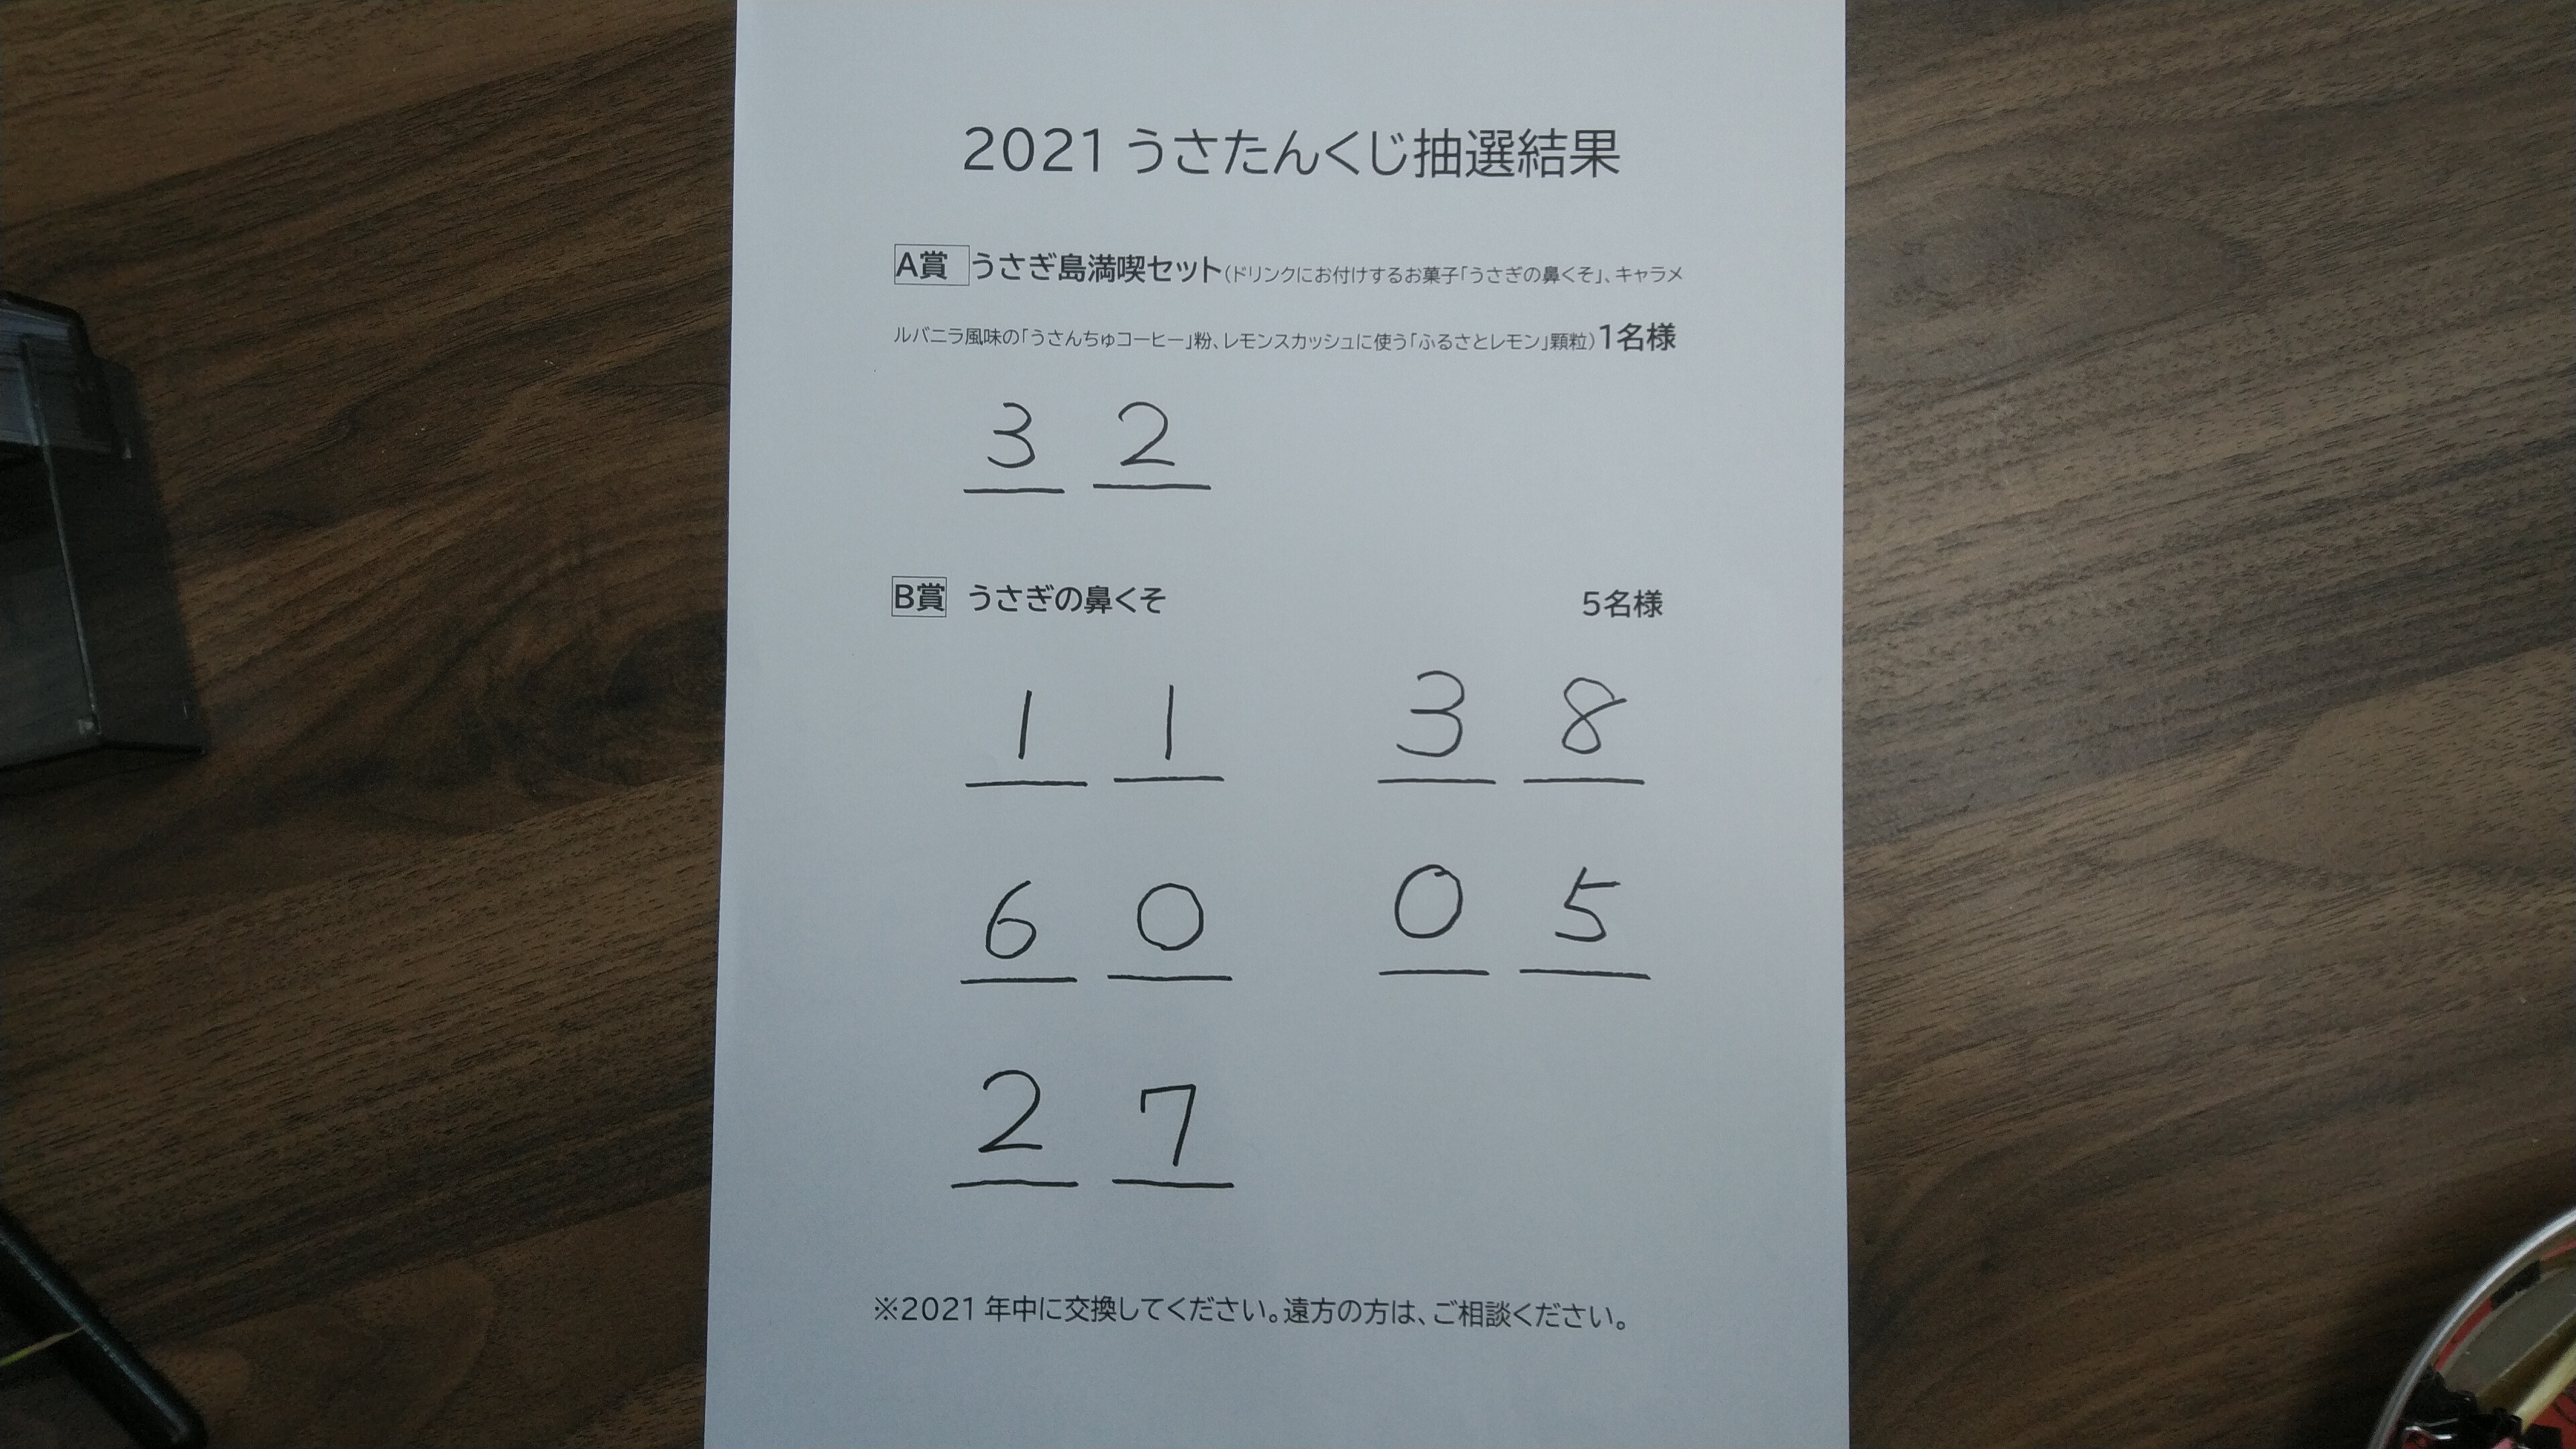 2021 うさたんくじ抽選結果
A賞 うさぎ島満喫セット(ドリンクにお付けするお菓子「うさぎの鼻くそ」、キャラメ
ルバニラ風味の「うさんちゅコーヒー」粉、レモンスカッシュに使う「ふるさとレモン」顆粒)1名様
3 2
B賞 うさぎの鼻くそ 5名様
1 1 3 8
6 0 0 5
2 7
※2021年中に交換してください。遠方の方は、ご相談ください。